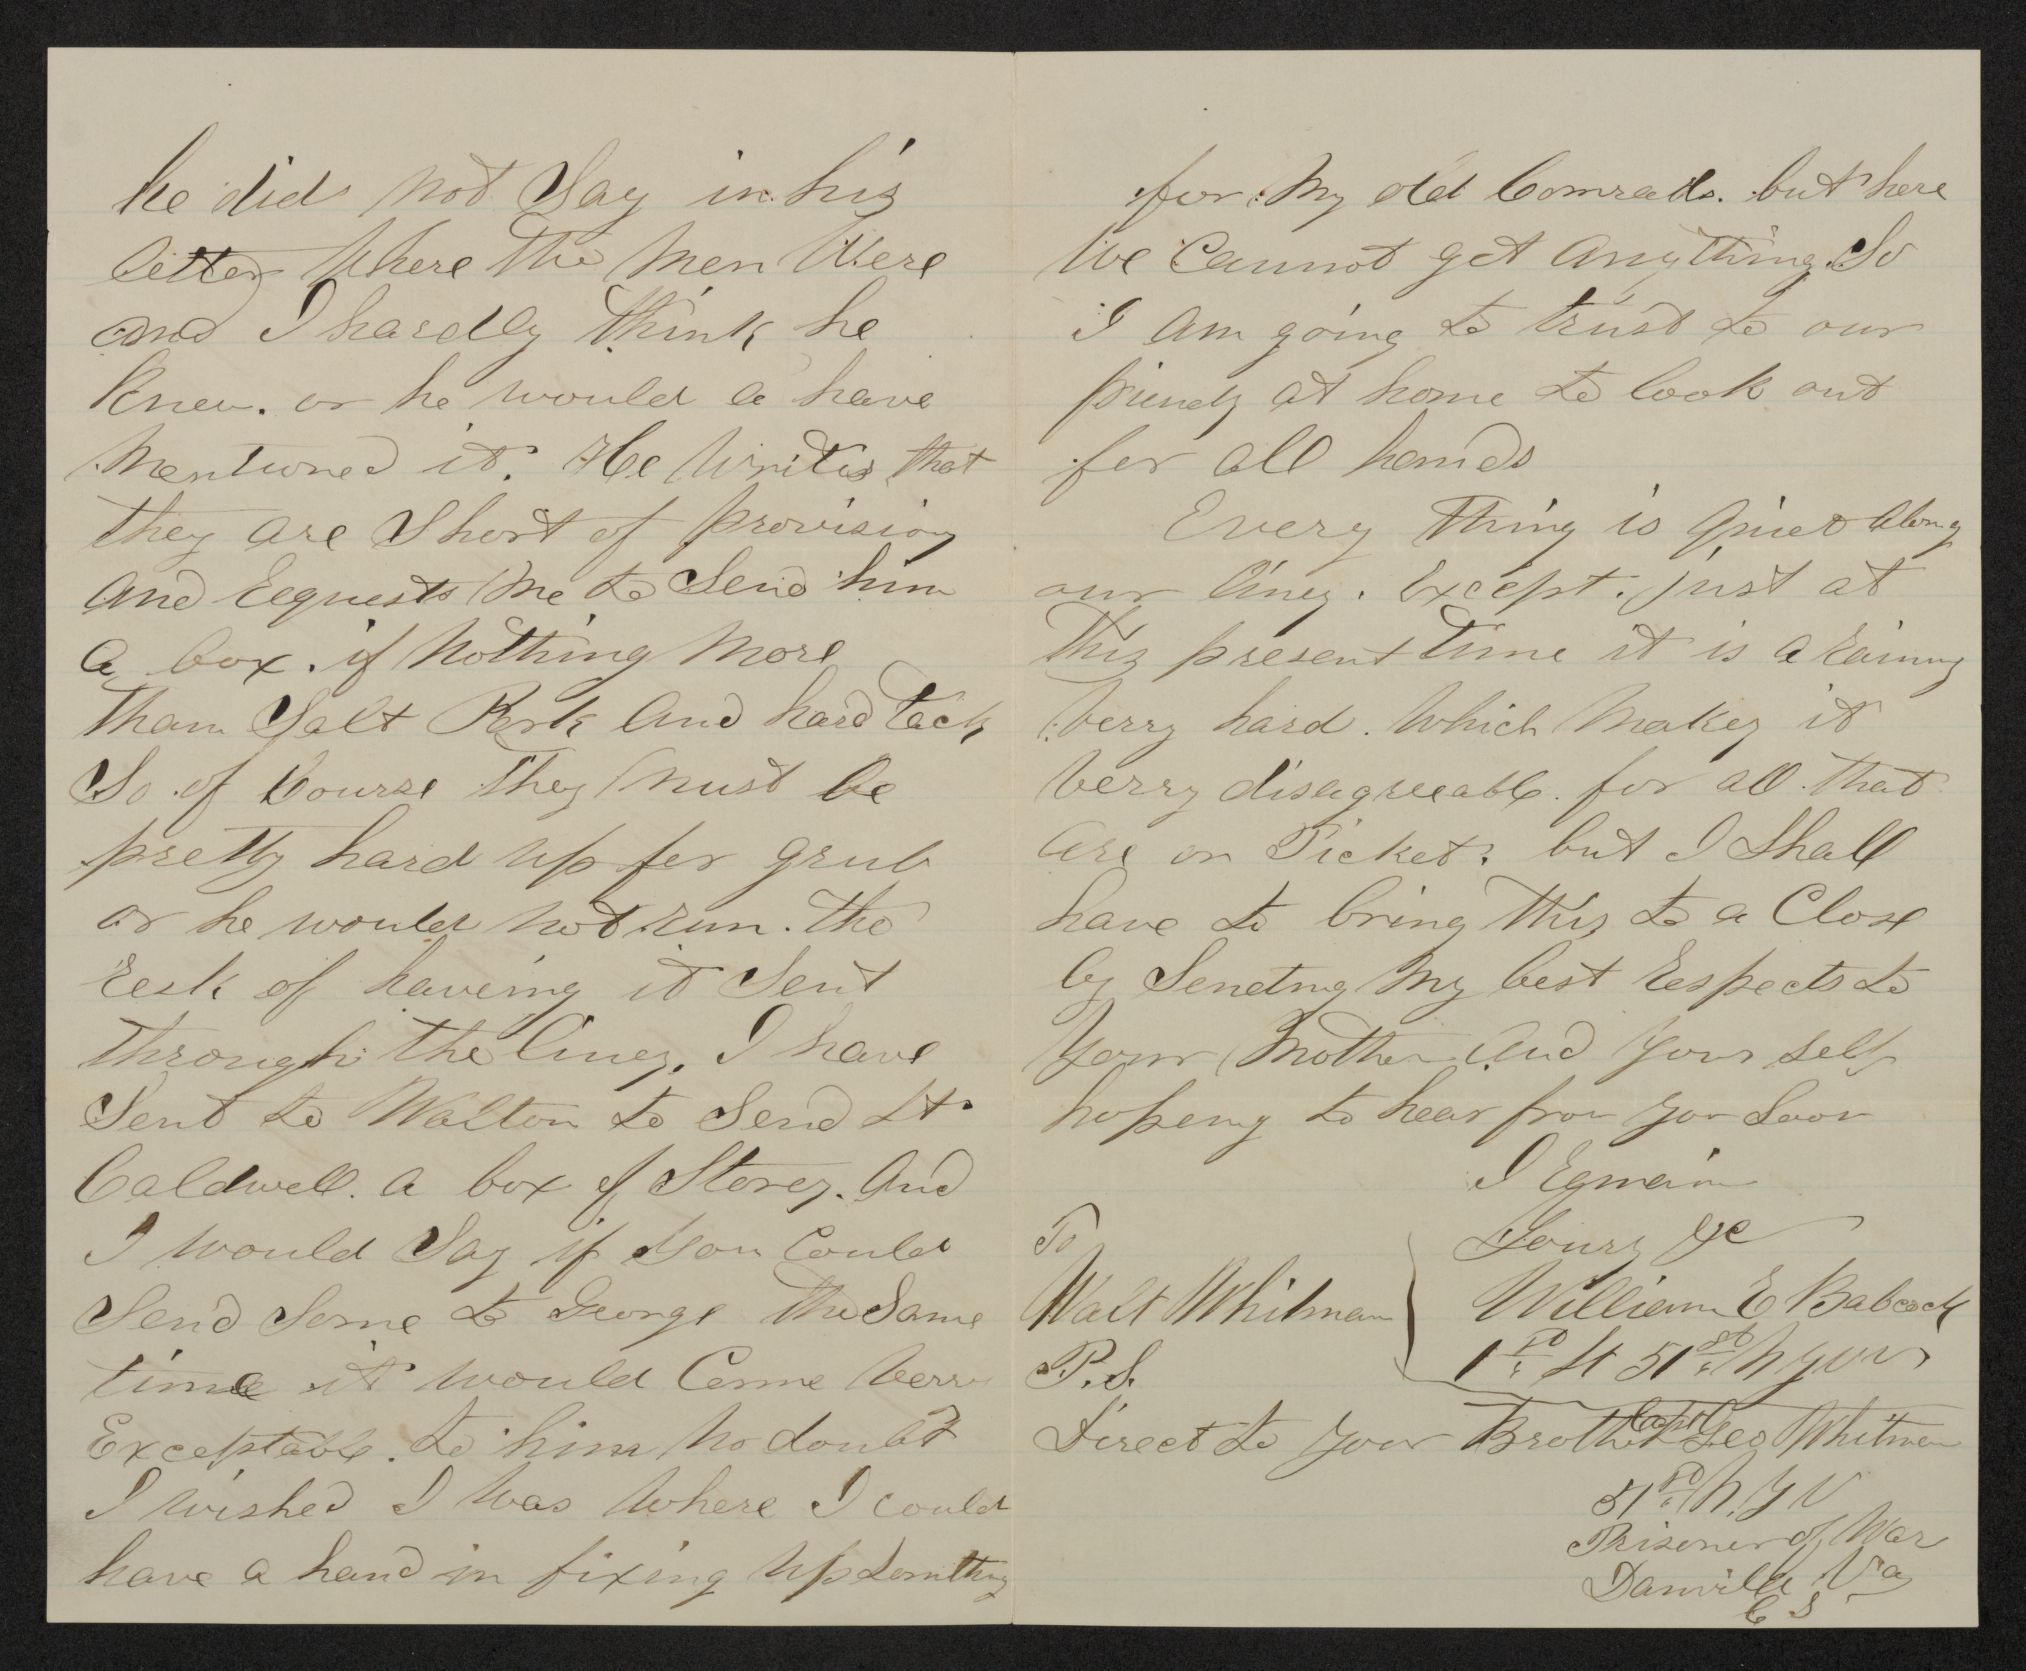 he did not Say in his
letter Where the Men Were
and I hardly think he
Knew. or he would a have
Mentioned it. He Writes that
they are Short of provision
and requests Me to Send him
a box. if Nothing More
than Salt Pork and hard tack
So of Course they Must be
pretty hard up for grub
or he would not run. the
resk of haveing it Sent
through the lines. I have
Sent to Walton to Send Lt.
Caldwell. a box of Stores. And
I would Say if you Could
Send Some to George the Same
time it would Come verry
Exceptable. to him no doubt
I wished I Was Where I could
have a hand in fixing up Somthing
for My old Comrads. but here
We Cannot get anything. So
I am going to trust to our
friends at home to look out
for all hands
Every thing is quiet along
our lines. Except. just at
this present time it is a raining
verry hard. Which Makes it
verry disagreeable. for all. that
are on Picket. but I Shall
have to bring this to a Close
by Sending My best respects to
Your Mother. and your self
hopeing to hear from you Soon
I remain
Yours &c
William E Babcock
1st Lt 51st N Y V V
To
Walt Whitman
P.S.
Direct to your Brother Capt Geo Whitman
51st N. Y V
Prisoner of War
Danville Va
C S